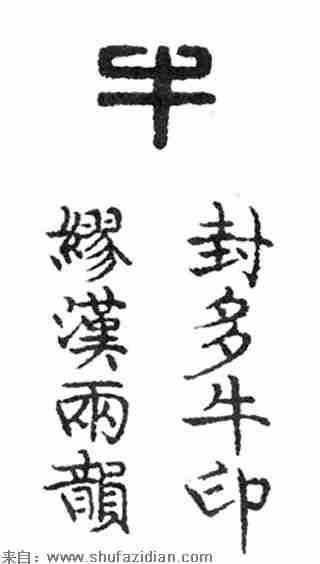 牛
封多牛印
繆漢兩韻
来自：www.shufazidian.com